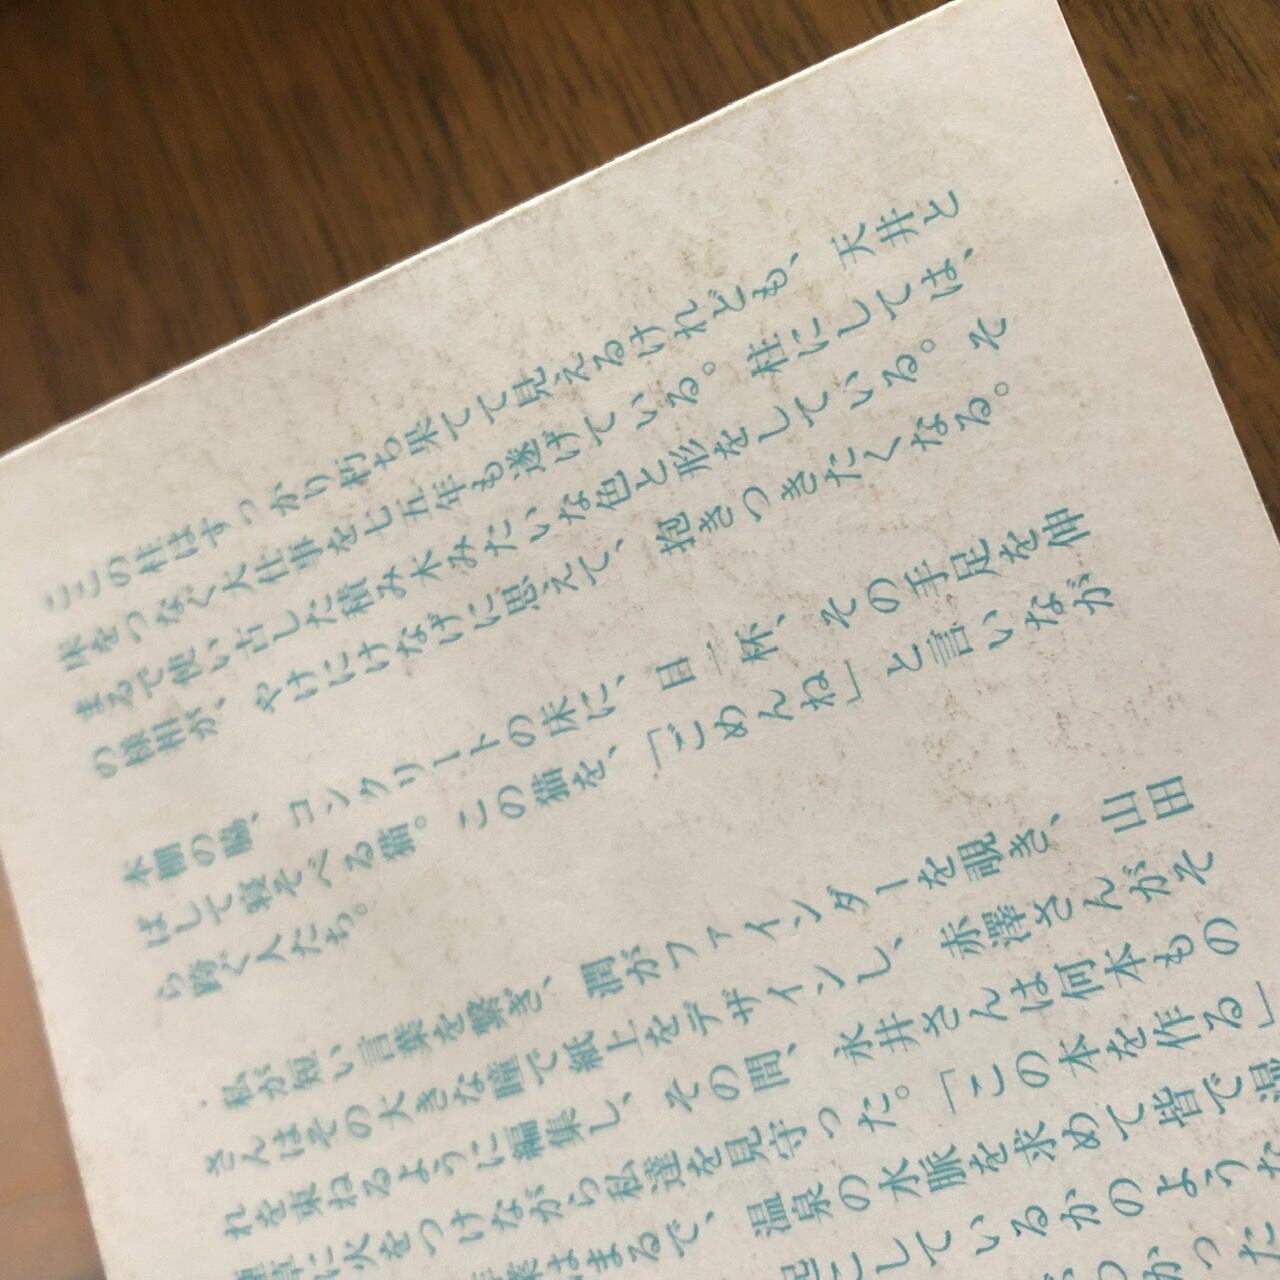 ここの柱はすっかり朽ち果てて見えるけれども、天井と
床をつなぐ大仕事を七五年も遂げている。柱にしては、
まるで使い古した積み木みたいな色と形をしている。そ
の様相が、やけにけなげに思えて、抱きつきたくなる。
本棚の脇、コンクリートの床に、目一杯、その手足を伸
ばして寝そべる猫。この猫を、「ごめんね」と言いなが
ら跨ぐ人たち。
私が短い言葉を繋ぎ、潤がファインダーを覗き、山田
さんはその大きな瞳で紙上をデザインし、赤澤さんがそ
れを束ねるように編集し、その間、永井さんは何本もの
に火をつけながら私達を見守った。「この本を作る」
はまるで、温泉の水脈を求めて皆で温
こしているかのような
かった